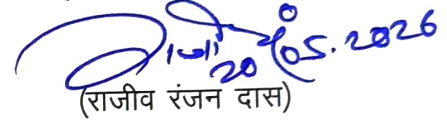 20/05.2026
(राजीव रंजन दास)